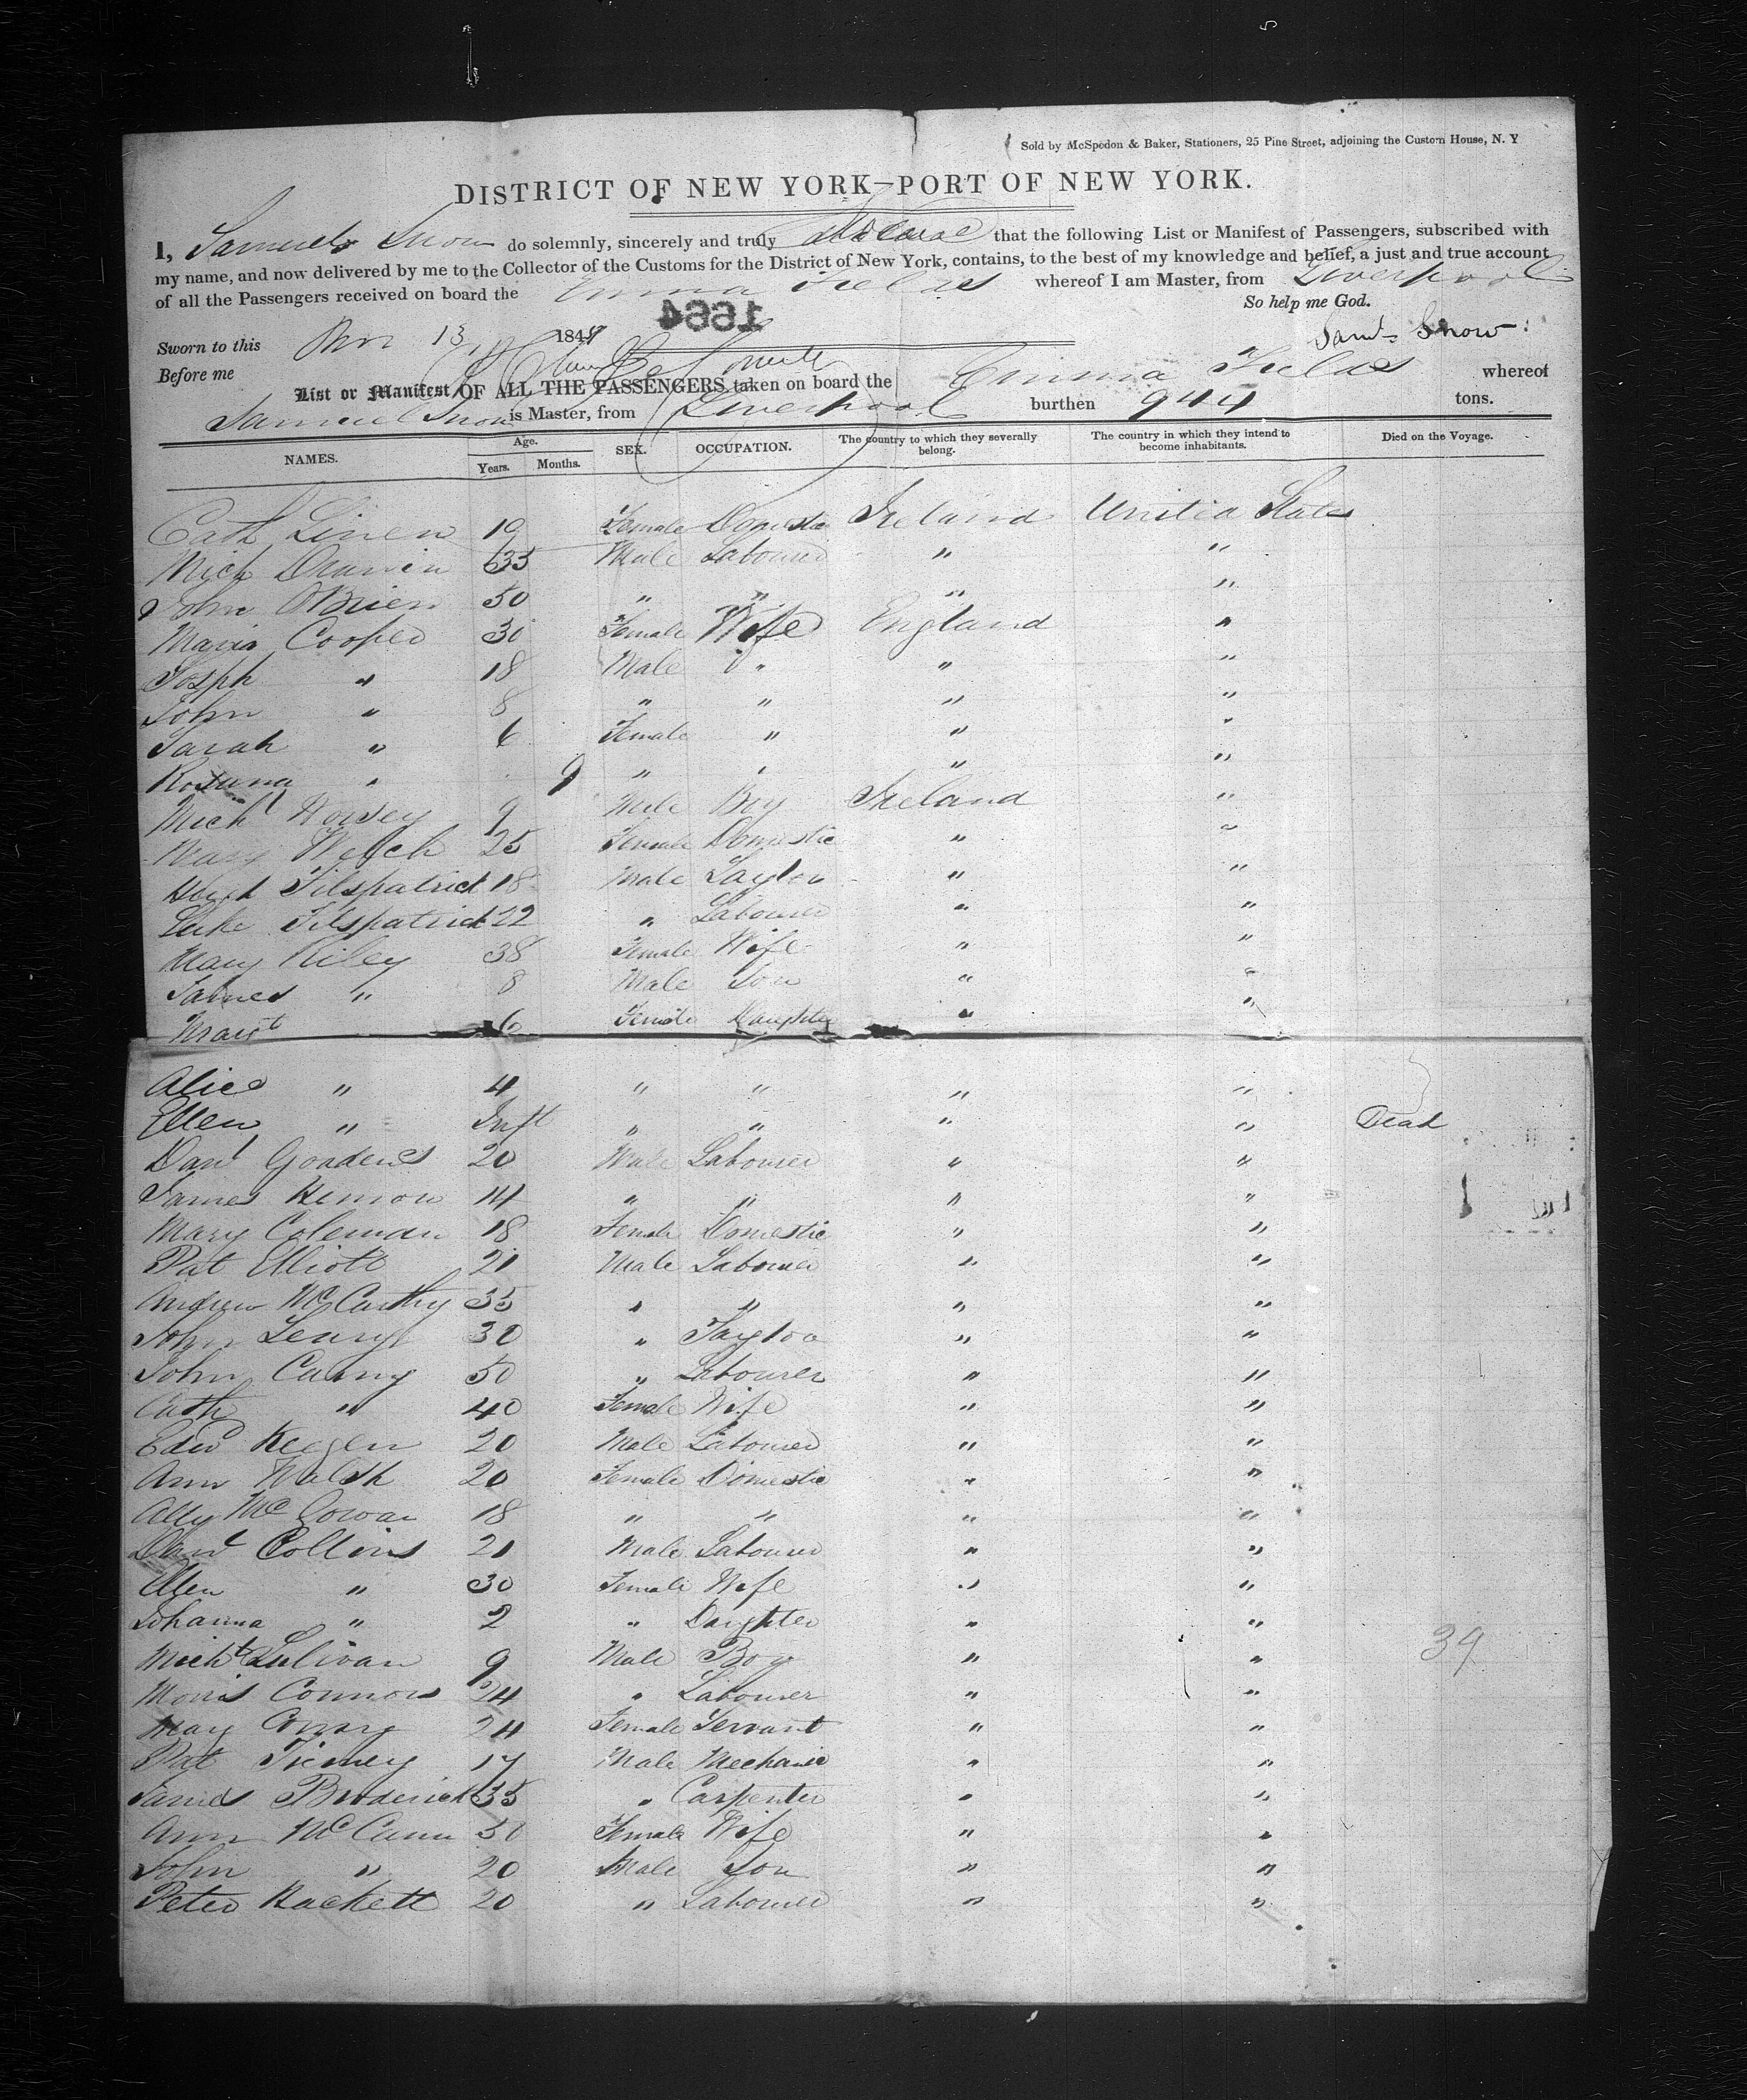 Sold by McSpedon & Baker, Stationers, 25 Pine Street, adjoining the Custom House, N. Y
DISTRICT OF NEW YORK—PORT OF NEW YORK.
I, Samuel Snow do solemnly, sincerely and truly that the following List or Manifest of Passengers, subscribed with
my name, and now delivered by me to the Collector of the Customs for the District of New York, contains, to the best of my knowledge and belief, a just and true account
of all the Passengers received on board the Emma Fields whereof I am Master, from Liverpool
So help me God.
1664
Sworn to this 13 184
Saml Snow
Before me
List or Manifest OF ALL THE PASSENGERS taken on board the Emma Fields whereof
Samuel Snow is Master, from Liverpool burthen 944 tons.
NAMES. Age. Years. Months. SEX. OCCUPATION. The country to which they severally belong. The country in which they intend to become inhabitants. Died on the Voyage.
Cath Linen 19 Female Domestic Ireland United States
Mich 35 Male Labourer " "
John OBrien 50 " " " "
Maria Cooper 30 Female Wife England "
Josph " 18 Male " " "
John " 8 " " " "
Sarah " 6 Female " " "
Rosanna " 9 " " " "
Michl 9 Male Boy Ireland "
Mary Welch 25 Female Domestic " "
Hugh Fitspatrick 18 Male Taylor " "
Luke Fitspatrick 22 " Labourer " "
Mary Riley 38 Female Wife " "
James " 8 Male Son " "
Margt 6 Female Daughter " "
Alice " 4 " " " "
Ellen " Inft " " " " Dead
Danl 20 Male Labourer " "
James 14 " " " "
Mary Coleman 18 Female Domestic " "
Pat Elliott 21 Male Labourer " "
Andrew McCarthy 35 " " " "
John 30 " Taylor " "
John 50 " Labourer " "
Cath " 40 Female Wife " "
Edwd Keegen 20 Male Labourer " "
Ann Walsh 20 Female Domestic " "
Ally McGowan 18 " " " "
Danl Collins 21 Male Labourer " "
Ellen " 30 Female Wife " "
Johanna " 2 " Daughter " "
Michl Sulivan 9 Male Boy " " 39
Morris Connors 24 " Labourer " "
Mary 24 Female Servant " "
Pat Tierney 17 Male Mechanic " "
James Broderick 35 " Carpenter " "
Ann McCann 50 Female Wife " "
John " 20 Male Son " "
Peter Hackett 20 " Labourer " "